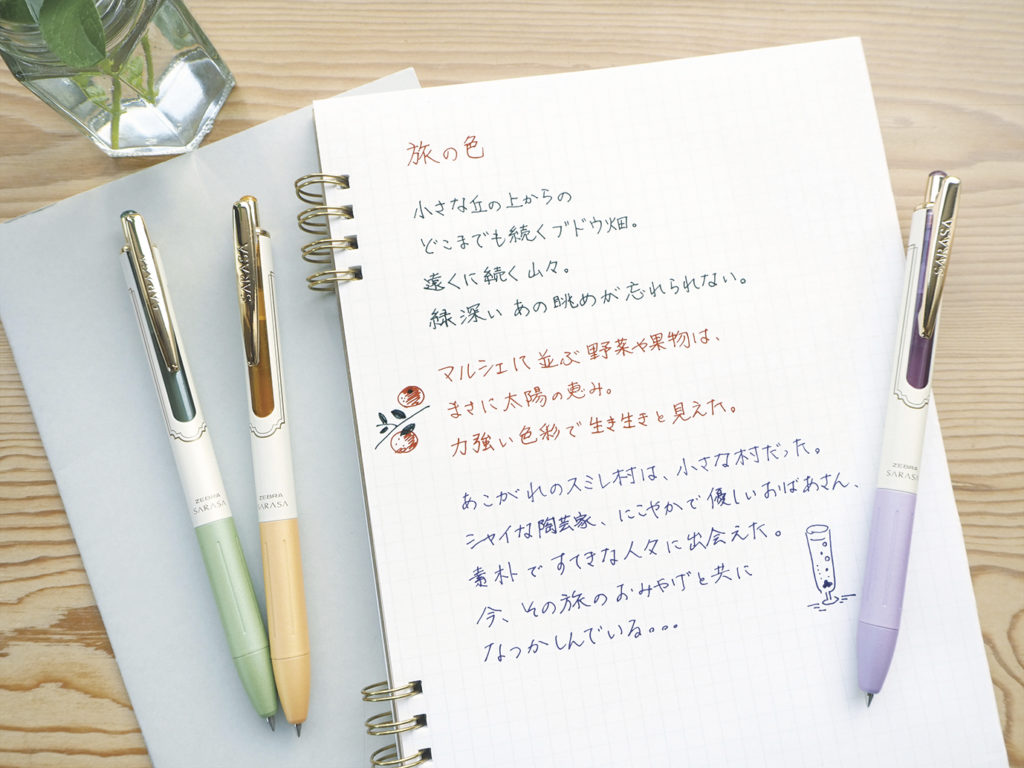 旅の色
小さな丘の上からの
どこまでも続くブドウ畑。
遠くに続く山々。
緑深いあの眺めが忘れられない。
マルシェに並ぶ野菜や果物は、
まさに太陽の恵み。
力強い色彩で生き生きと見えた。
あこがれのスミレ村は、小さな村だった。
シャイな陶芸家、にこやかで優しいおばあさん、
素朴ですてきな人々に出会えた。
今、その旅のおみやげと共に
なつかしんでいる。。。
SARASA
SARASA
SARASA
ZEBRA
SARASA
ZEBRA
SARASA
ZEBRA
SARASA